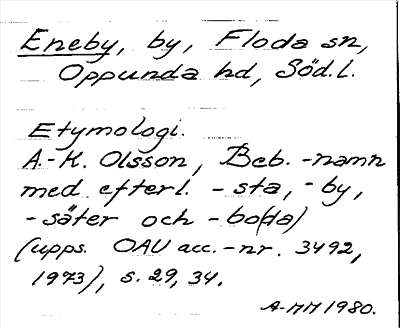 Eneby, by, Floda sn,
Oppunda hd, Söd.l.
Etymologi.
A.-K. Olsson, Beb.-namn
med efterl. -sta, -by,
-säter och -bo(da)
(upps. OAU acc.-nr. 3492,
1973), s. 29, 34.
A-MM 1980.